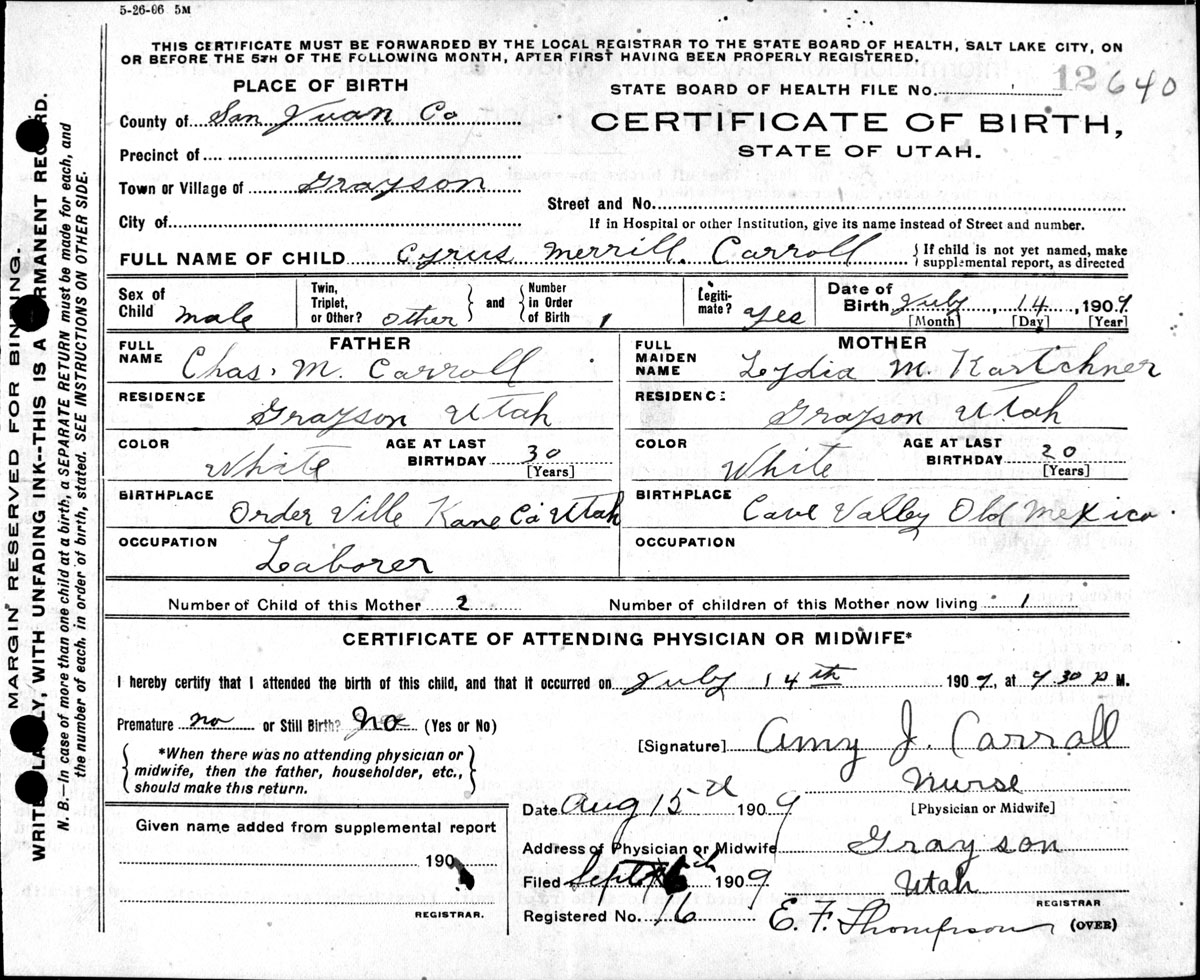 5-26-06 5M
THIS CERTIFICATE MUST BE FORWARDED BY THE LOCAL REGISTRAR TO THE STATE BOARD OF HEALTH, SALT LAKE CITY, ON
OR BEFORE THE 5TH OF THE FOLLOWING MONTH, AFTER FIRST HAVING BEEN PROPERLY REGISTERED.
PLACE OF BIRTH
STATE BOARD OF HEALTH FILE No. 12640
County of San Juan Co
CERTIFICATE OF BIRTH,
STATE OF UTAH.
Precinct of
Town or Village of Grayson
Street and No.
City of
If in Hospital or other Institution, give its name instead of Street and number.
FULL NAME OF CHILD Cyrus Merrill. Carroll { If child is not yet named, make
supplemental report, as directed
Sex of Child male
Twin, Triplet, or Other? other } and { Number in Order of Birth 1
Legiti-mate? yes
Date of Birth July 14, 1909.
[Month] [Day] [Year]
FATHER
MOTHER
FULL NAME Chas. M. Carroll
FULL MAIDEN NAME Lydia M. Kartchner
RESIDENCE Grayson Utah
RESIDENCE Grayson Utah
COLOR White AGE AT LAST BIRTHDAY 30 [Years]
COLOR White AGE AT LAST BIRTHDAY 20 [Years]
BIRTHPLACE Order Ville Kane Co Utah
BIRTHPLACE Cave Valley Old Mexico
OCCUPATION Laborer
OCCUPATION
Number of Child of this Mother 2
Number of children of this Mother now living 1
CERTIFICATE OF ATTENDING PHYSICIAN OR MIDWIFE*
I hereby certify that I attended the birth of this child, and that it occurred on July 14th 1909, at 9 30 P M.
Premature no or Still Birth? No (Yes or No)
[Signature] Amy J. Carroll
{ *When there was no attending physician or
midwife, then the father, householder, etc.,
should make this return. }
Nurse
[Physician or Midwife]
Date Aug 15th 1909
Given name added from supplemental report
Address of Physician or Midwife Grayson
190
Filed Sept 1909
Utah
REGISTRAR.
Registered No. 16
E. F. Thompson
REGISTRAR
(OVER)
MARGIN RESERVED FOR BINDING.
WRITE PLAINLY, WITH UNFADING INK--THIS IS A PERMANENT RECORD.
N. B.—In case of more than one child at a birth, a SEPARATE RETURN must be made for each, and
the number of each, in order of birth, stated. SEE INSTRUCTIONS ON OTHER SIDE.